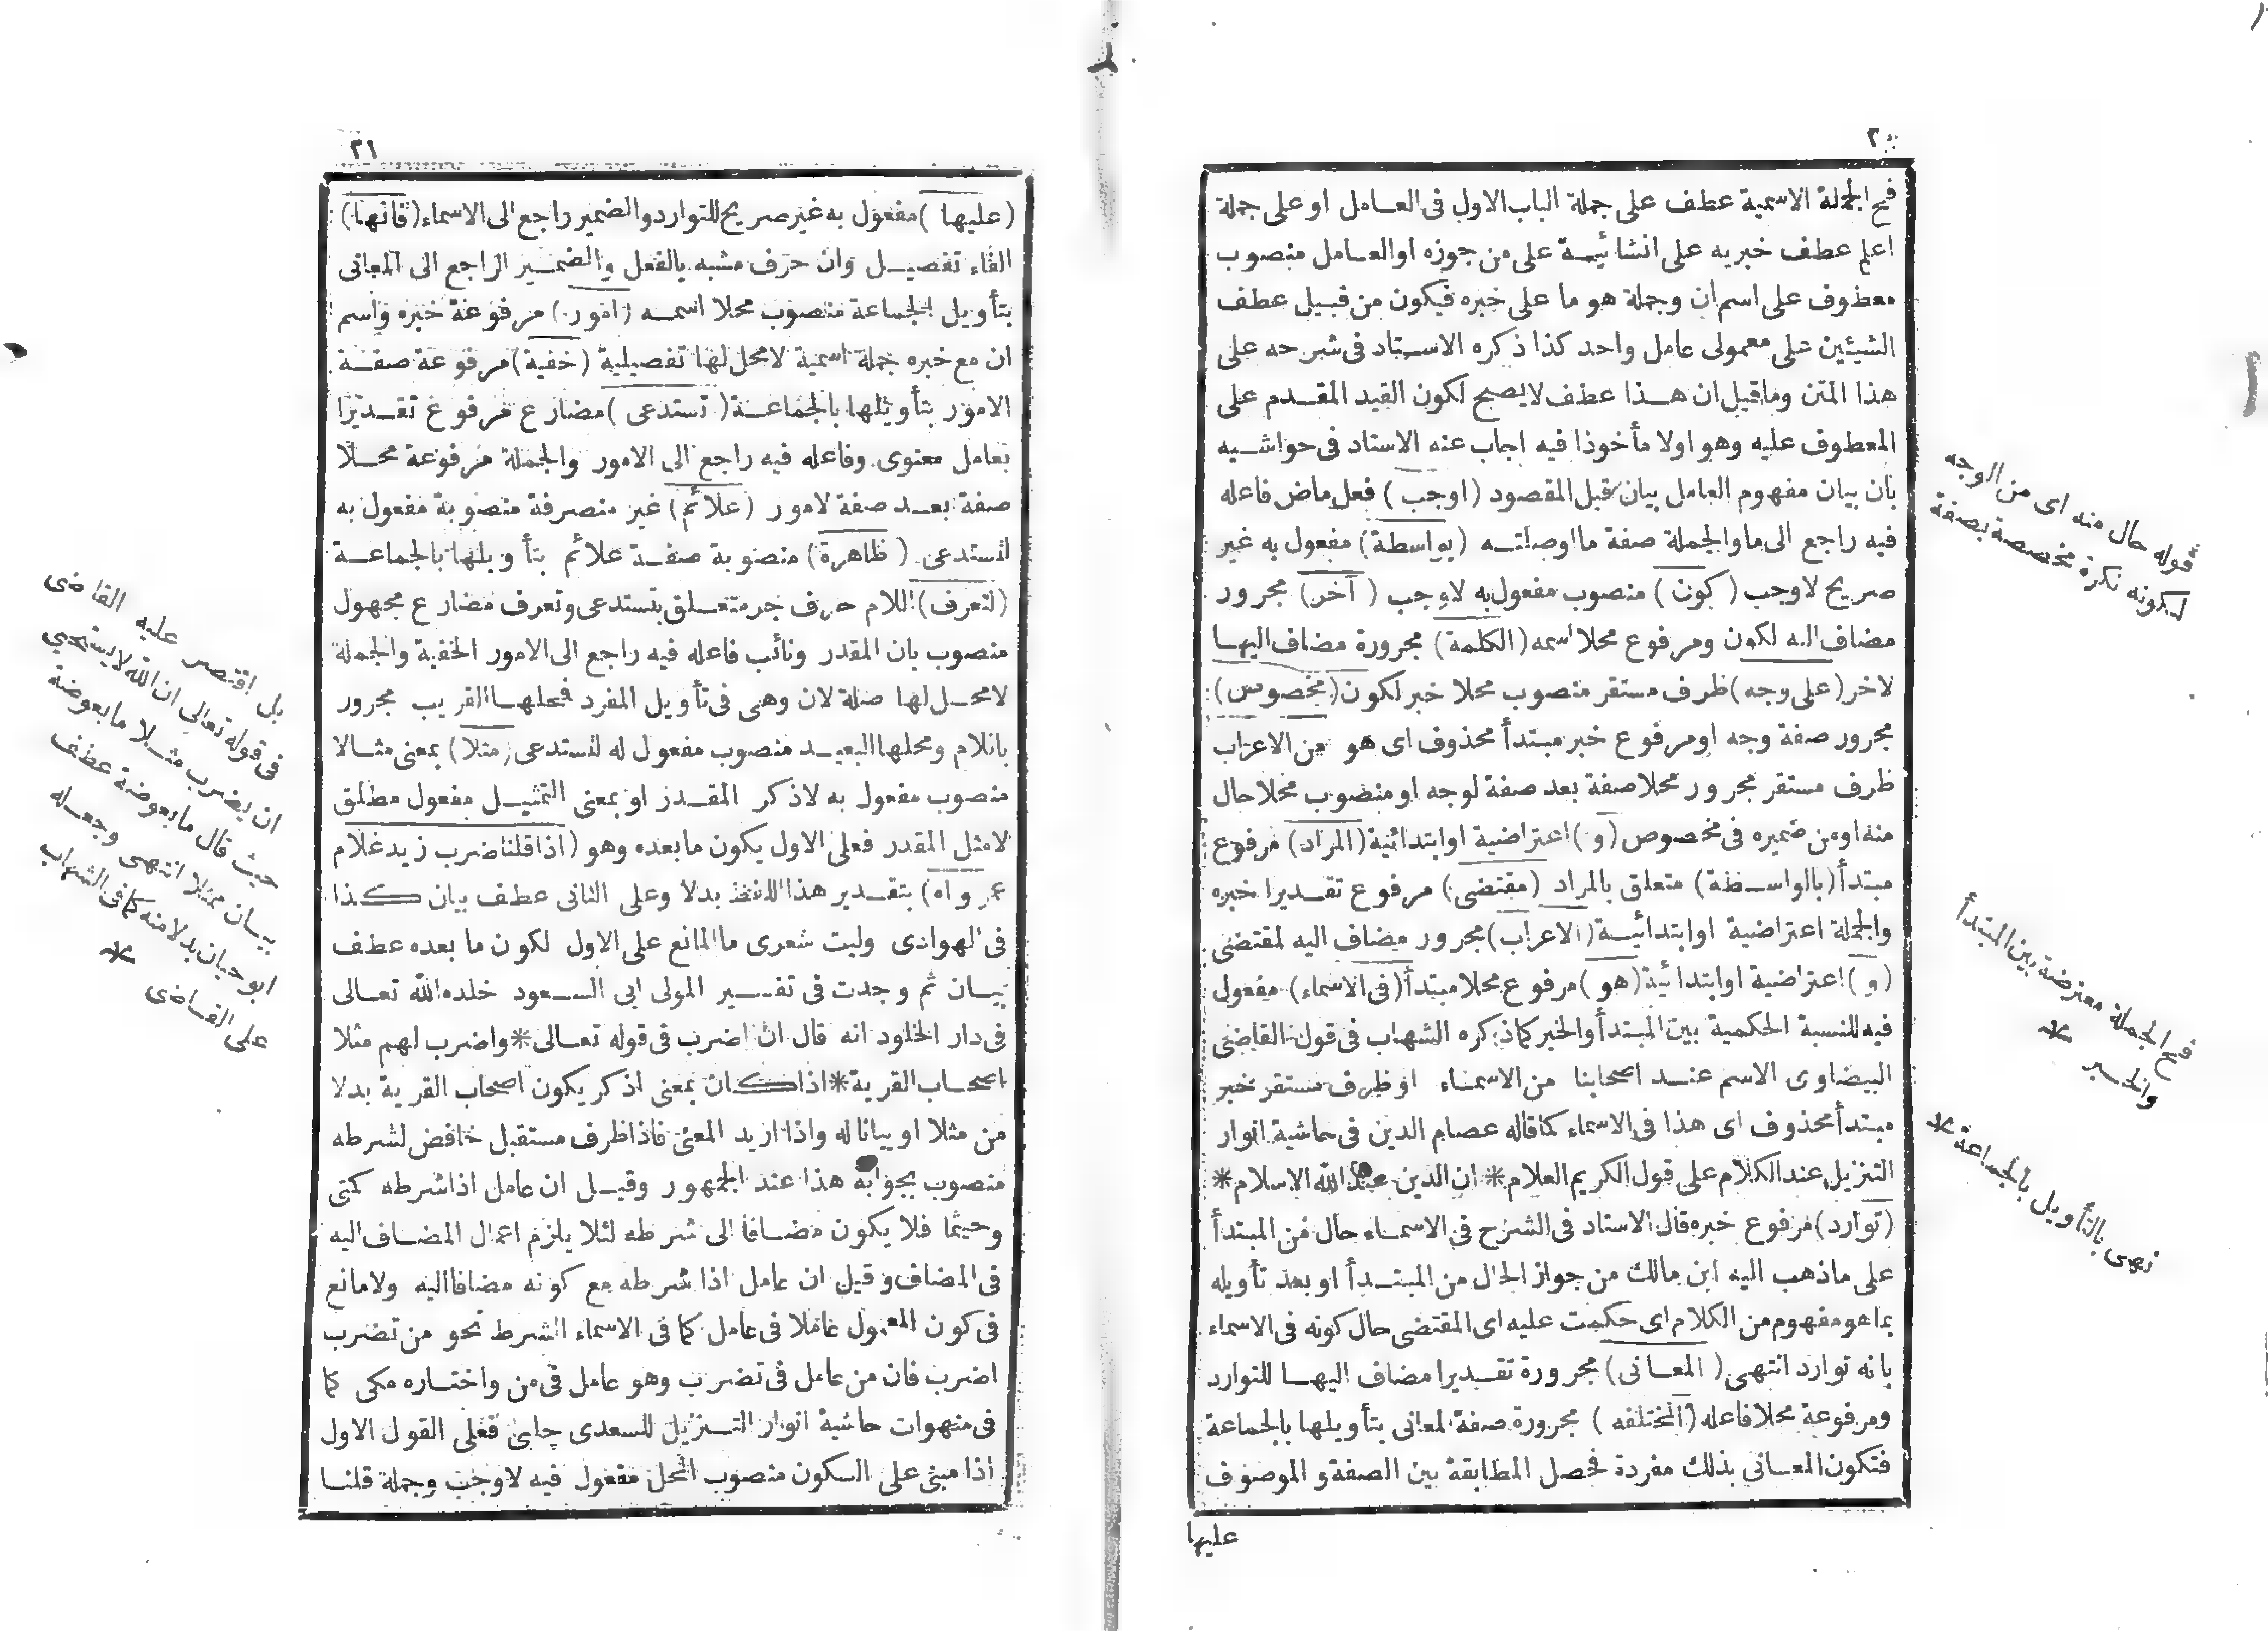 ٢٠
فح الجملة الاسمية عطف على جملة الباب الاول فى العامل او على جملة
اعلم عطف خبريه على انشائيـة على من جوزه او العامل منصوب
معطوف على اسم ان وجملة هو ما على خبره فيكون من قبيل عطف
الشيئين على معمولى عامل واحد كذا ذكره الاستاد فى شرحه على
هذا المتن وماقيل ان هذا عطف لايصح لكون القيد المقدم على
المعطوف عليه وهو اولا مأخوذا فيه اجاب عنه الاستاد فى حواشيه
بان بيان مفهوم العامل بيان قبل المقصود (اوجب) فعل ماض فاعله
فيه راجع الى ما والجملة صفة ما او صلته (بواسطة) مفعول به غير
صريح لاوجب (كون) منصوب مفعول به لاوجب (آخر) مجرور
مضاف اليه لكون ومرفوع محلا اسمه (الكلمة) مجرورة مضاف اليها
لاخر (على وجه) ظرف مستقر منصوب محلا خبر لكون (مخصوص)
مجرور صفة وجه او مرفوع خبر مبتدأ محذوف اى هو من الاعراب
ظرف مستقر مجرور محلا صفة بعد صفة لوجه او منصوب محلا حال
منه او من ضميره فى مخصوص (و) اعتراضية او ابتدائية (المراد) مرفوع
مبتدأ (بالواسطة) متعلق بالمراد (مقتضى) مرفوع تقديرا خبره
والجملة اعتراضية او ابتدائية (الاعراب) مجرور مضاف اليه لمقتضى
(و) اعتراضية او ابتدائية (هو) مرفوع محلا مبتدأ (فى الاسماء) مفعول
فيه للنسبة الحكمية بين المبتدأ والخبر كما ذكره الشهاب فى قول القاضى
البيضاوى الاسم عند اصحابنا من الاسماء او ظرف مستقر خبر
مبتدأ محذوف اى هذا فى الاسماء كما قاله عصام الدين فى حاشية انوار
التنزيل عند الكلام على قول الكريم العلام * ان الدين عند الله الاسلام *
(توارد) مرفوع خبره قال الاستاد فى الشرح فى الاسماء حال من المبتدأ
على ماذهب اليه ابن مالك من جواز الحال من المبتدأ او بعد تأويله
بما هو مفهوم من الكلام اى حكمت عليه اى المقتضى حال كونه فى الاسماء
بانه توارد انتهى (المعانى) مجرورة تقديرا مضاف اليها للتوارد
ومرفوعة محلا فاعله (المختلفه) مجرورة صفة لمعانى بتأويلها بالجماعة
فتكون المعانى بذلك مفردة فحصل المطابقة بين الصفة و الموصوف
عليها
قوله حال منه اى من الوجه
لكونه نكرة مخصصة بصفة
فح الجملة معترضة بين المبتدأ
والخبر *
نهى بالتأويل بالجماعة *
٢١
(عليها) مفعول به غير صريح للتوارد والضمير راجع الى الاسماء (فانها)
الفاء تفصيل وان حرف مشبه بالفعل والضمير الراجع الى المعانى
بتأويل الجماعة منصوب محلا اسمه (امور) مرفوعة خبره واسم
ان مع خبره جملة اسمية لامحل لها تفصيلية (خفية) مرفوعة صفة
الامور بتأويلها بالجماعة (تستدعى) مضارع مرفوع تقديرا
بعامل معنوى وفاعله فيه راجع الى الامور والجملة مرفوعة محلا
صفة بعد صفة لامور (علائم) غير منصرفة منصوبة مفعول به
لتستدعى (ظاهرة) منصوبة صفة علائم بتأويلها بالجماعة
(لتعرف) اللام حرف جر متعلق بتستدعى وتعرف مضارع مجهول
منصوب بان المقدر ونائب فاعله فيه راجع الى الامور الخفية والجملة
لامحل لها صلة لان وهى فى تأويل المفرد فمحلها القريب مجرور
باللام ومحلها البعيد منصوب مفعول له لتستدعى (مثلا) بمعنى مثالا
منصوب مفعول به لاذكر المقدر او بمعنى التمثيل مفعول مطلق
لامثل المقدر فعلى الاول يكون مابعده وهو (اذا قلنا ضرب زيد غلام
عمرواه) بتقدير هذا اللفظ بدلا وعلى الثانى عطف بيان كذا
فى الهوادى وليت شعرى ما المانع على الاول لكون ما بعده عطف
بيان ثم وجدت فى تفسير المولى ابى السعود خلده الله تعالى
فى دار الخلود انه قال ان اضرب فى قوله تعالى * واضرب لهم مثلا
اصحاب القرية * اذا كان بمعنى اذكر يكون اصحاب القرية بدلا
من مثلا او بيانا له واذا اريد المعنى فاذا ظرف مستقبل خافض لشرطه
منصوب بجوابه هذا عند الجمهور وقيل ان عامل اذا شرطه كمتى
وحيثما فلا يكون مضافا الى شرطه لئلا يلزم اعمال المضاف اليه
فى المضاف وقيل ان عامل اذا شرطه مع كونه مضافا اليه ولا مانع
فى كون المعمول عاملا فى عامل كما فى الاسماء الشرط نحو من تضرب
اضرب فان من عامل فى تضرب وهو عامل فى من واختاره مكى كما
فى منهوات حاشية انوار التنزيل للسعدى چلبى فعلى القول الاول
اذا مبنى على السكون منصوب المحل مفعول فيه لاوجب وجملة قلنا
بل اقتصر عليه القاضى
فى قوله تعالى ان الله لا يستحيى
ان يضرب مثلا ما بعوضة
حيث قال ما بعوضة عطف
بيان لمثلا انتهى وجعله
ابو حيان بدلا منه كما فى الشهاب
على القاضى *